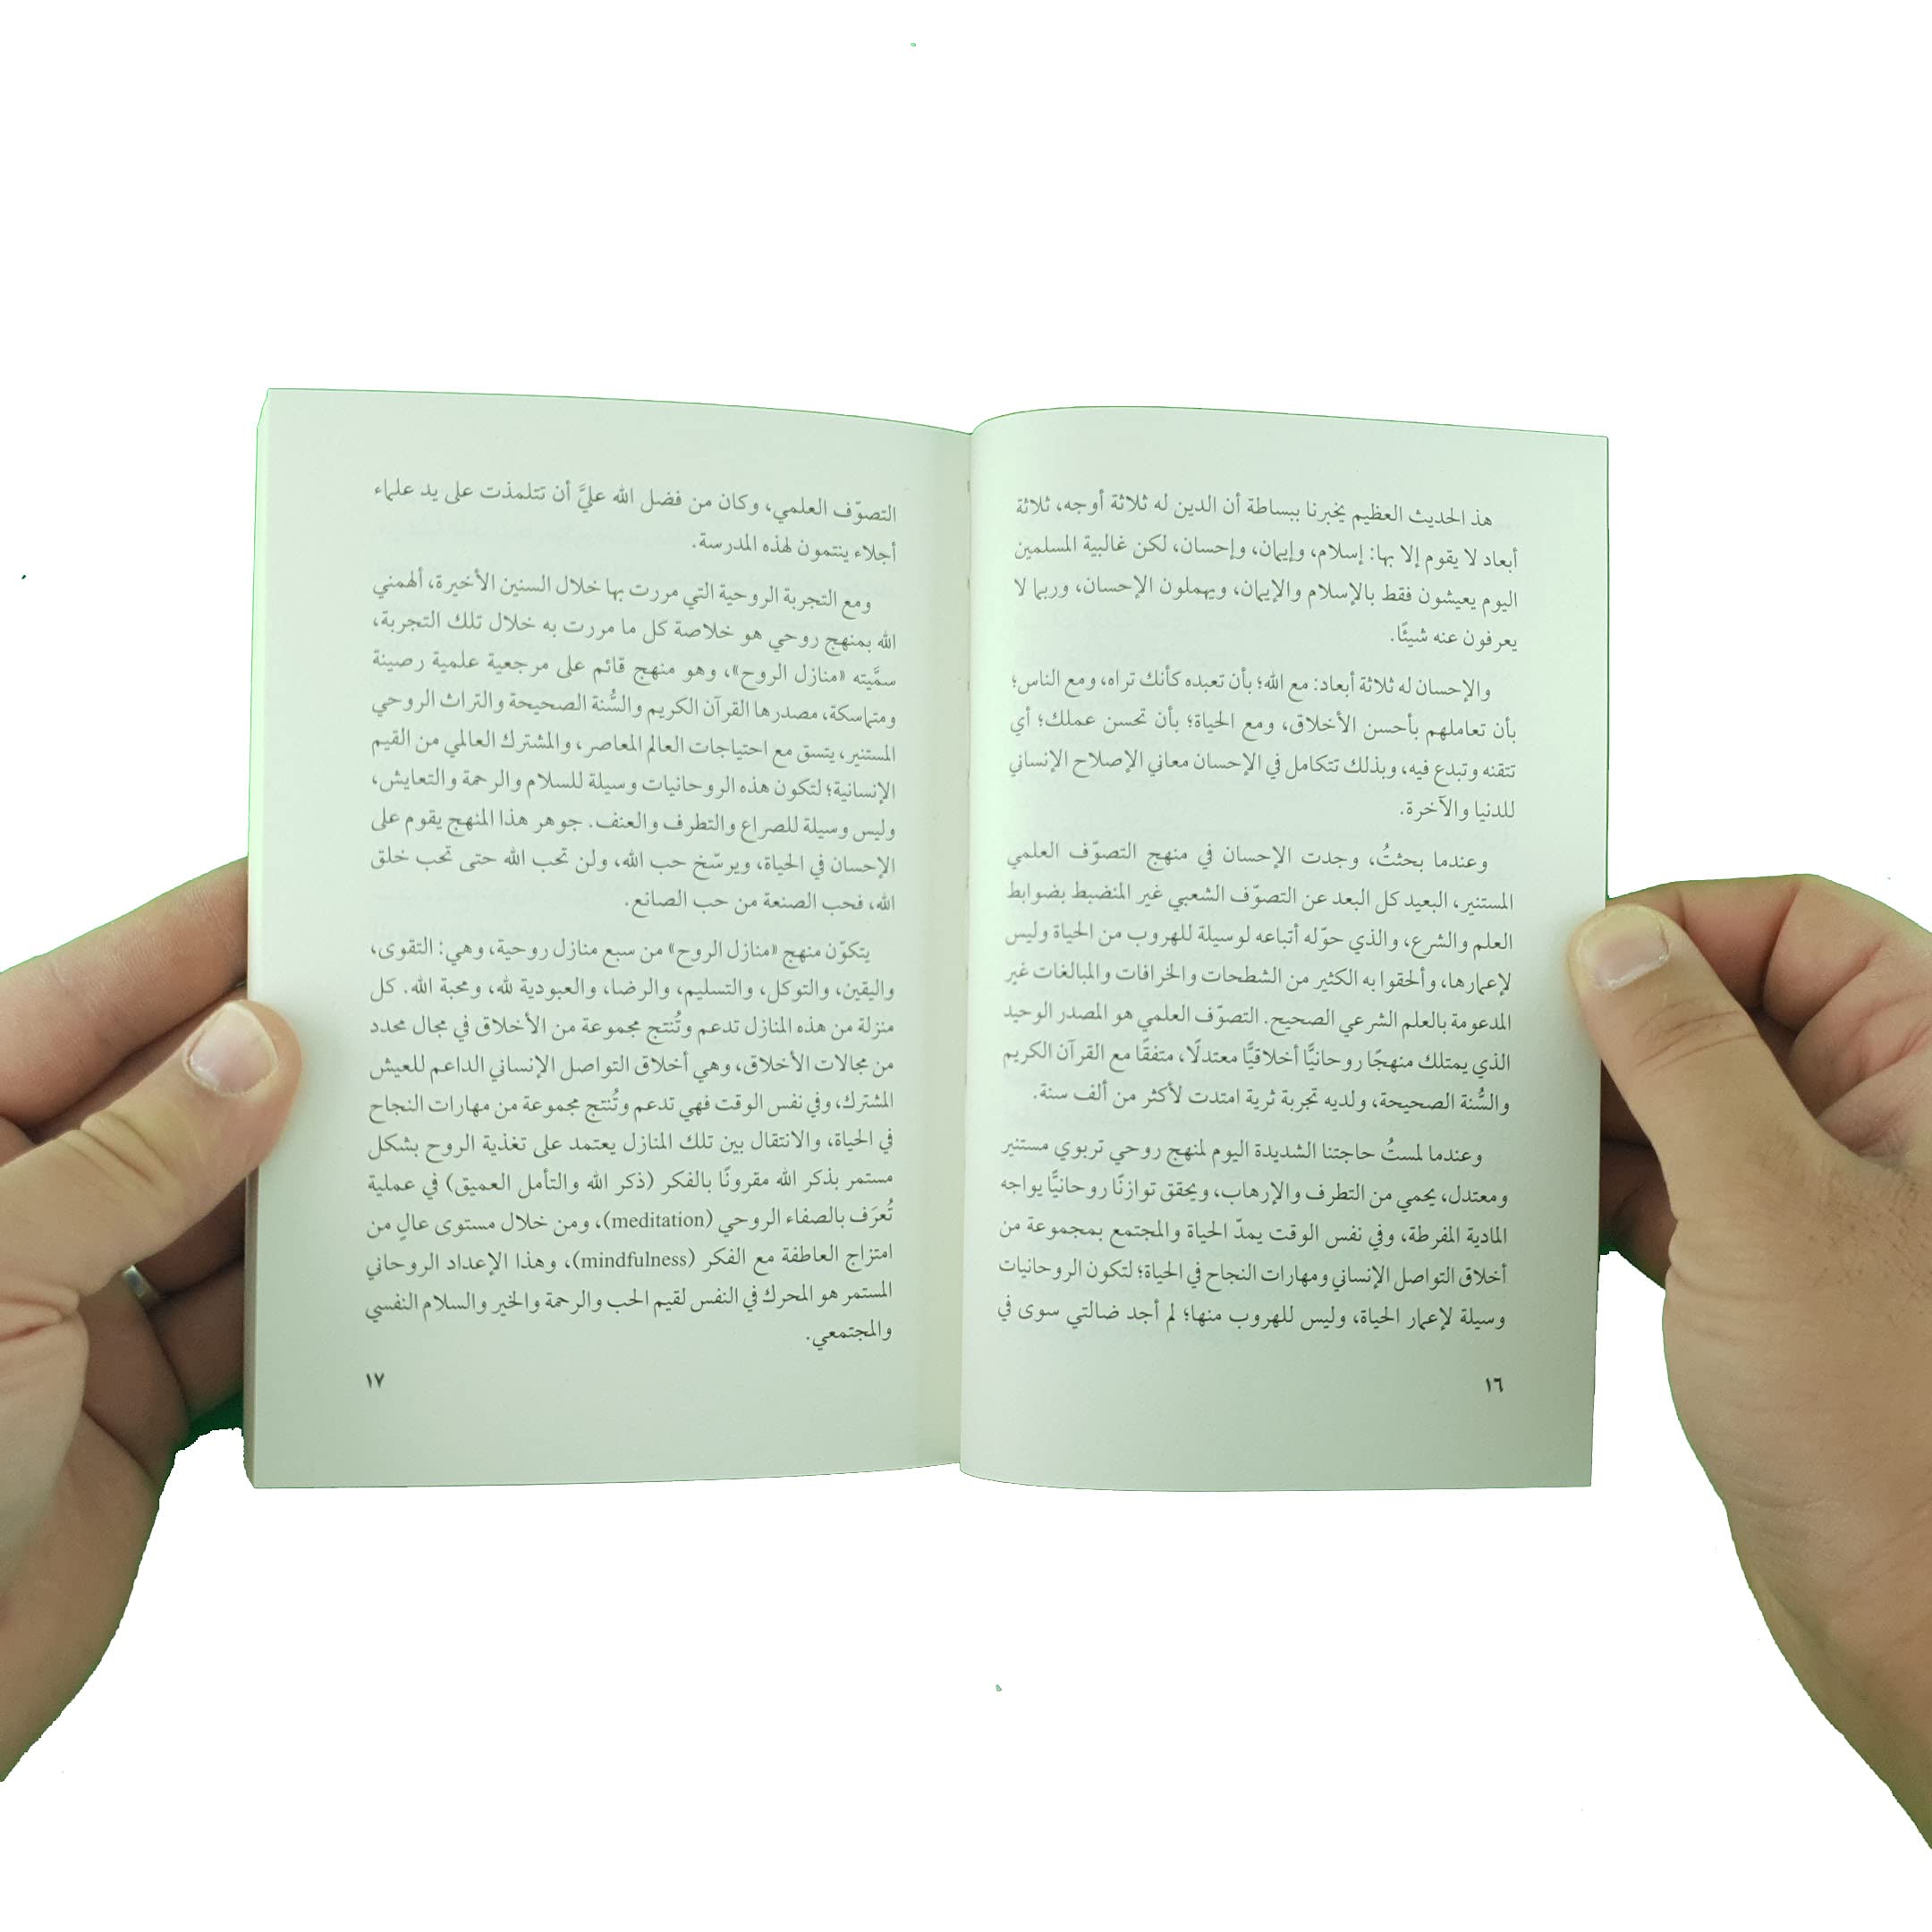 هذ الحديث العظيم يخبرنا ببساطة أن الدين له ثلاثة أوجه، ثلاثة
أبعاد لا يقوم إلا بها: إسلام، وإيمان، وإحسان، لكن غالبية المسلمين
اليوم يعيشون فقط بالإسلام والإيمان، ويهملون الإحسان، وربما لا
يعرفون عنه شيئًا.
والإحسان له ثلاثة أبعاد: مع الله؛ بأن تعبده كأنك تراه، ومع الناس؛
بأن تعاملهم بأحسن الأخلاق، ومع الحياة؛ بأن تحسن عملك؛ أي
تتقنه وتبدع فيه، وبذلك تتكامل في الإحسان معاني الإصلاح الإنساني
للدنيا والآخرة.
وعندما بحثتُ، وجدت الإحسان في منهج التصوّف العلمي
المستنير، البعيد كل البعد عن التصوّف الشعبي غير المنضبط بضوابط
العلم والشرع، والذي حوّله أتباعه لوسيلة للهروب من الحياة وليس
لإعمارها، وألحقوا به الكثير من الشطحات والخرافات والمبالغات غير
المدعومة بالعلم الشرعي الصحيح. التصوّف العلمي هو المصدر الوحيد
الذي يمتلك منهجًا روحانيًّا أخلاقيًّا معتدلًا، متفقًا مع القرآن الكريم
والسُّنة الصحيحة، ولديه تجربة ثرية امتدت لأكثر من ألف سنة.
وعندما لمستُ حاجتنا الشديدة اليوم لمنهج روحي تربوي مستنير
ومعتدل، يحمي من التطرف والإرهاب، ويحقق توازنًا روحانيًّا يواجه
المادية المفرطة، وفي نفس الوقت يمدّ الحياة والمجتمع بمجموعة من
أخلاق التواصل الإنساني ومهارات النجاح في الحياة؛ لتكون الروحانيات
وسيلة لإعمار الحياة، وليس للهروب منها؛ لم أجد ضالتي سوى في
١٦
التصوّف العلمي، وكان من فضل الله عليَّ أن تتلمذت على يد علماء
أجلاء ينتمون لهذه المدرسة.
ومع التجربة الروحية التي مررت بها خلال السنين الأخيرة، ألهمني
الله بمنهج روحي هو خلاصة كل ما مررت به خلال تلك التجربة،
سمَّيته «منازل الروح»، وهو منهج قائم على مرجعية علمية رصينة
ومتماسكة، مصدرها القرآن الكريم والسُّنة الصحيحة والتراث الروحي
المستنير، يتسق مع احتياجات العالم المعاصر، والمشترك العالمي من القيم
الإنسانية؛ لتكون هذه الروحانيات وسيلة للسلام والرحمة والتعايش،
وليس وسيلة للصراع والتطرف والعنف. جوهر هذا المنهج يقوم على
الإحسان في الحياة، ويرسّخ حب الله، ولن تحب الله حتى تحب خلق
الله، فحب الصنعة من حب الصانع.
يتكوّن منهج «منازل الروح» من سبع منازل روحية، وهي: التقوى،
واليقين، والتوكل، والتسليم، والرضا، والعبودية لله، ومحبة الله. كل
منزلة من هذه المنازل تدعم وتُنتج مجموعة من الأخلاق في مجال محدد
من مجالات الأخلاق، وهي أخلاق التواصل الإنساني الداعم للعيش
المشترك، وفي نفس الوقت فهي تدعم وتُنتج مجموعة من مهارات النجاح
في الحياة، والانتقال بين تلك المنازل يعتمد على تغذية الروح بشكل
مستمر بذكر الله مقرونًا بالفكر (ذكر الله والتأمل العميق) في عملية
تُعرَف بالصفاء الروحي (meditation)، ومن خلال مستوى عالٍ من
امتزاج العاطفة مع الفكر (mindfulness)، وهذا الإعداد الروحاني
المستمر هو المحرك في النفس لقيم الحب والرحمة والخير والسلام النفسي
والمجتمعي.
١٧